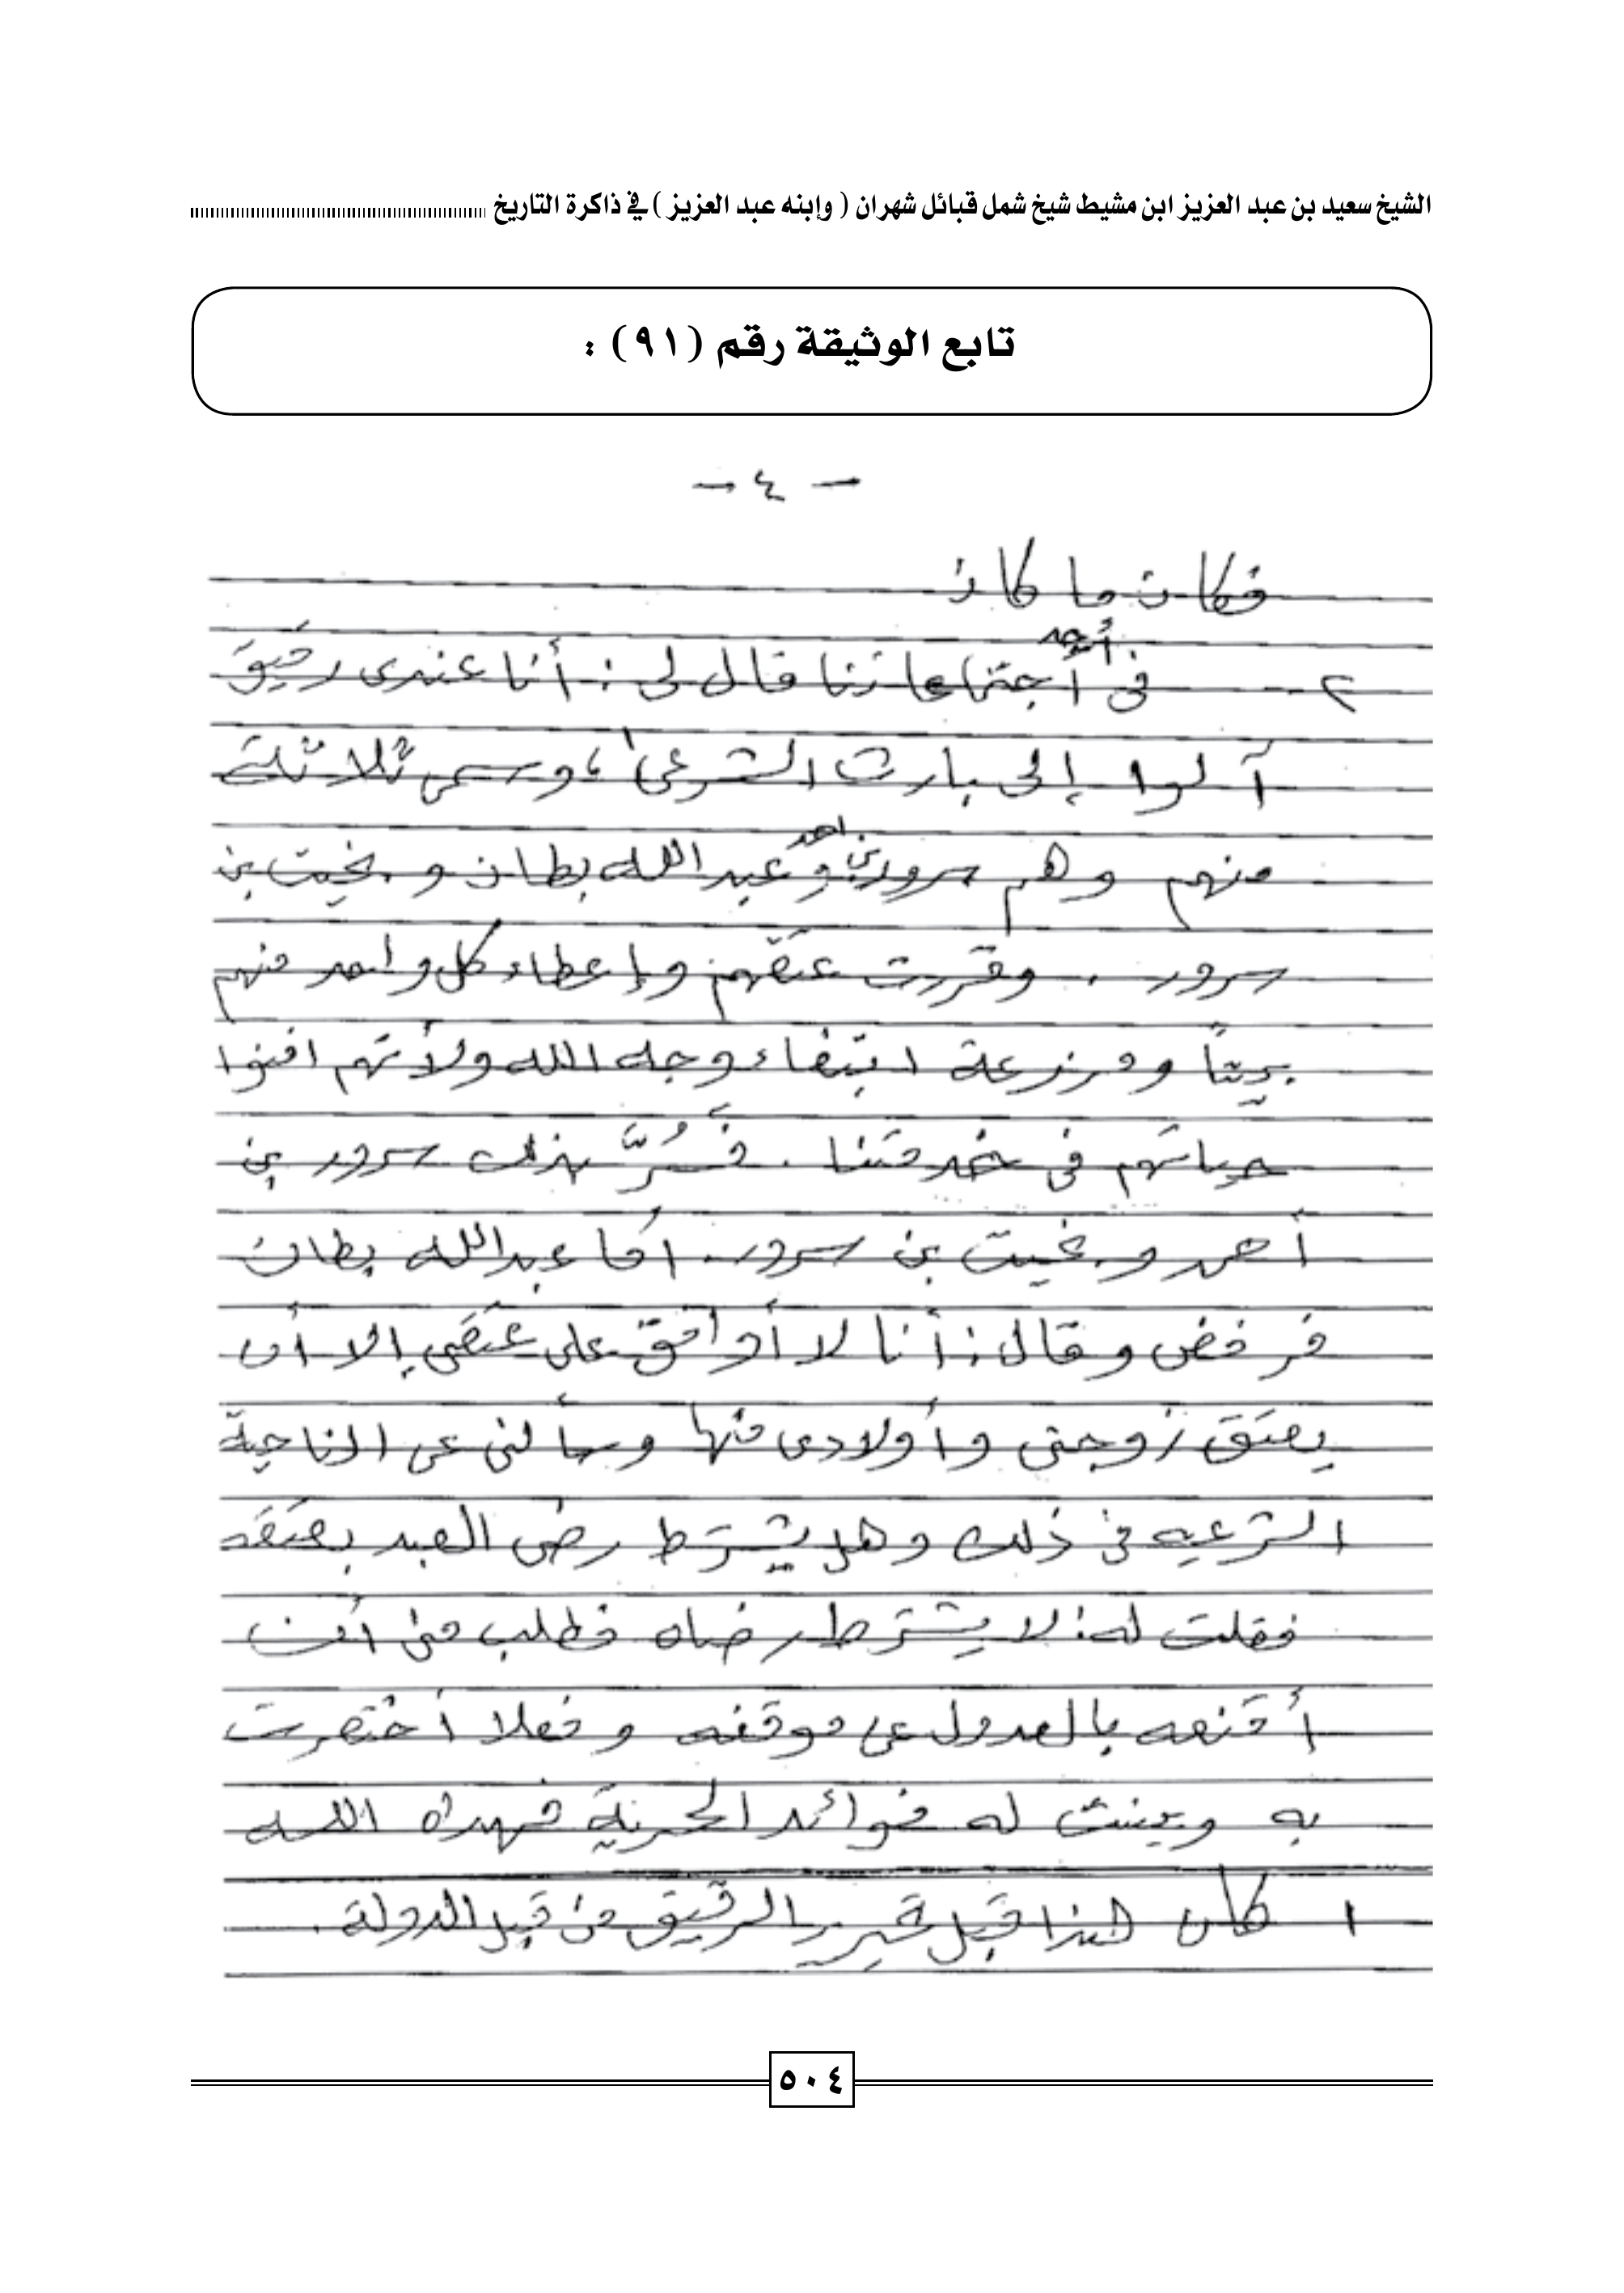 الشيخ سعيد بن عبد العزيز ابن مشيط شيخ شمل قبائل شهران ( وإبنه عبد العزيز ) في ذاكرة التاريخ
تابع الوثيقة رقم (٩١) :
- ٤ -
فكان ما كان
٢ - في أحد اجتماعاتنا قال لي : أنا عندى رقيق
آلوا إلى بارث الشرعى ١ ، وسمى ثلاثة
منهم وهم سرور بن أحمد و عبد الله بطان و بخيت بن
سرور . وقررت عتقهم وإعطاء كل واحد منهم
بيتاً ومزرعة ابتغاء وجه الله ولأنهم افنوا
حياتهم في خدمتنا . فَسُرَّ بذلك سرور بن
أحمد و بخيت بن سرور . أما عبدالله بطان
فرفض وقال : أنا لا أوافق على عتقي إلا أن
يعتق زوجتى وأولادى منها وسألنى عن الناحية
الشرعيه في ذلك وهل يشترط رضى العبد بعتقه
فقلت له : لا يشترط رضاه فطلب منى أن
أقنعه بالعدول عن موقفه وفعلا اختصرت
به وبينت له فوائد الحرية فهداه الله
١ كان هذا قبل تحرير الرقيق من قبل الدولة .
٥٠٤